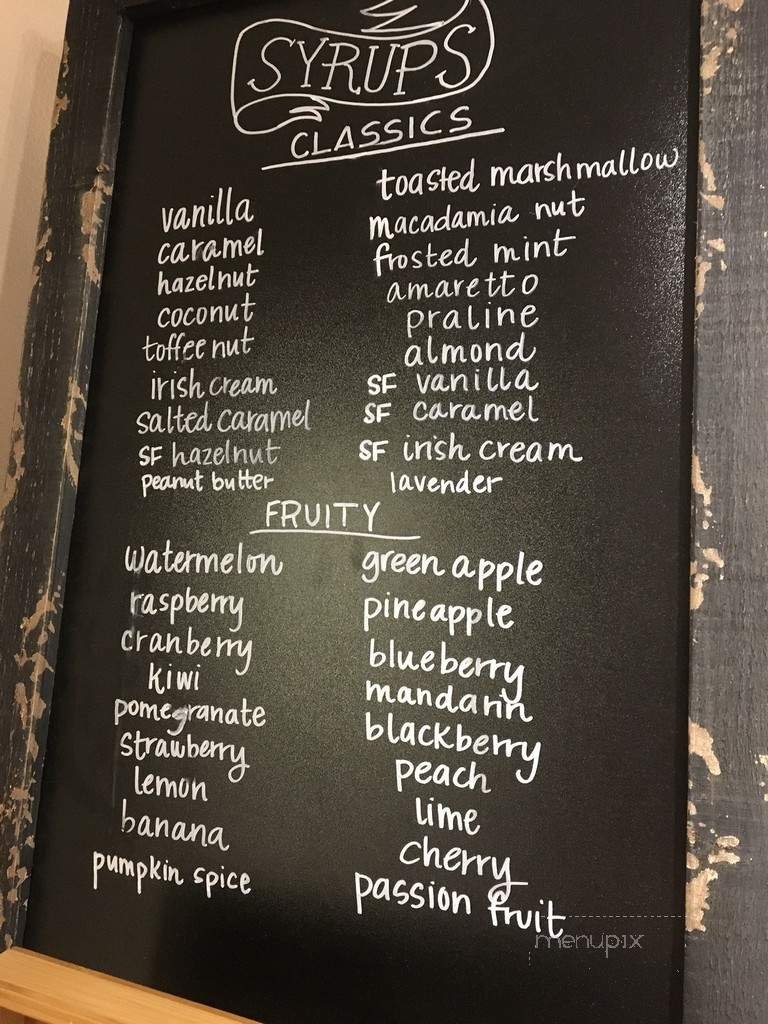 SYRUPS
CLASSICS
vanilla
caramel
hazelnut
coconut
toffee nut
irish cream
salted caramel
SF hazelnut
peanut butter
toasted marshmallow
macadamia nut
frosted mint
amaretto
praline
almond
SF vanilla
SF caramel
SF irish cream
lavender
FRUITY
watermelon
raspberry
cranberry
kiwi
pomegranate
strawberry
lemon
banana
pumpkin spice
green apple
pineapple
blueberry
mandarin
blackberry
peach
lime
cherry
passion fruit
menupix